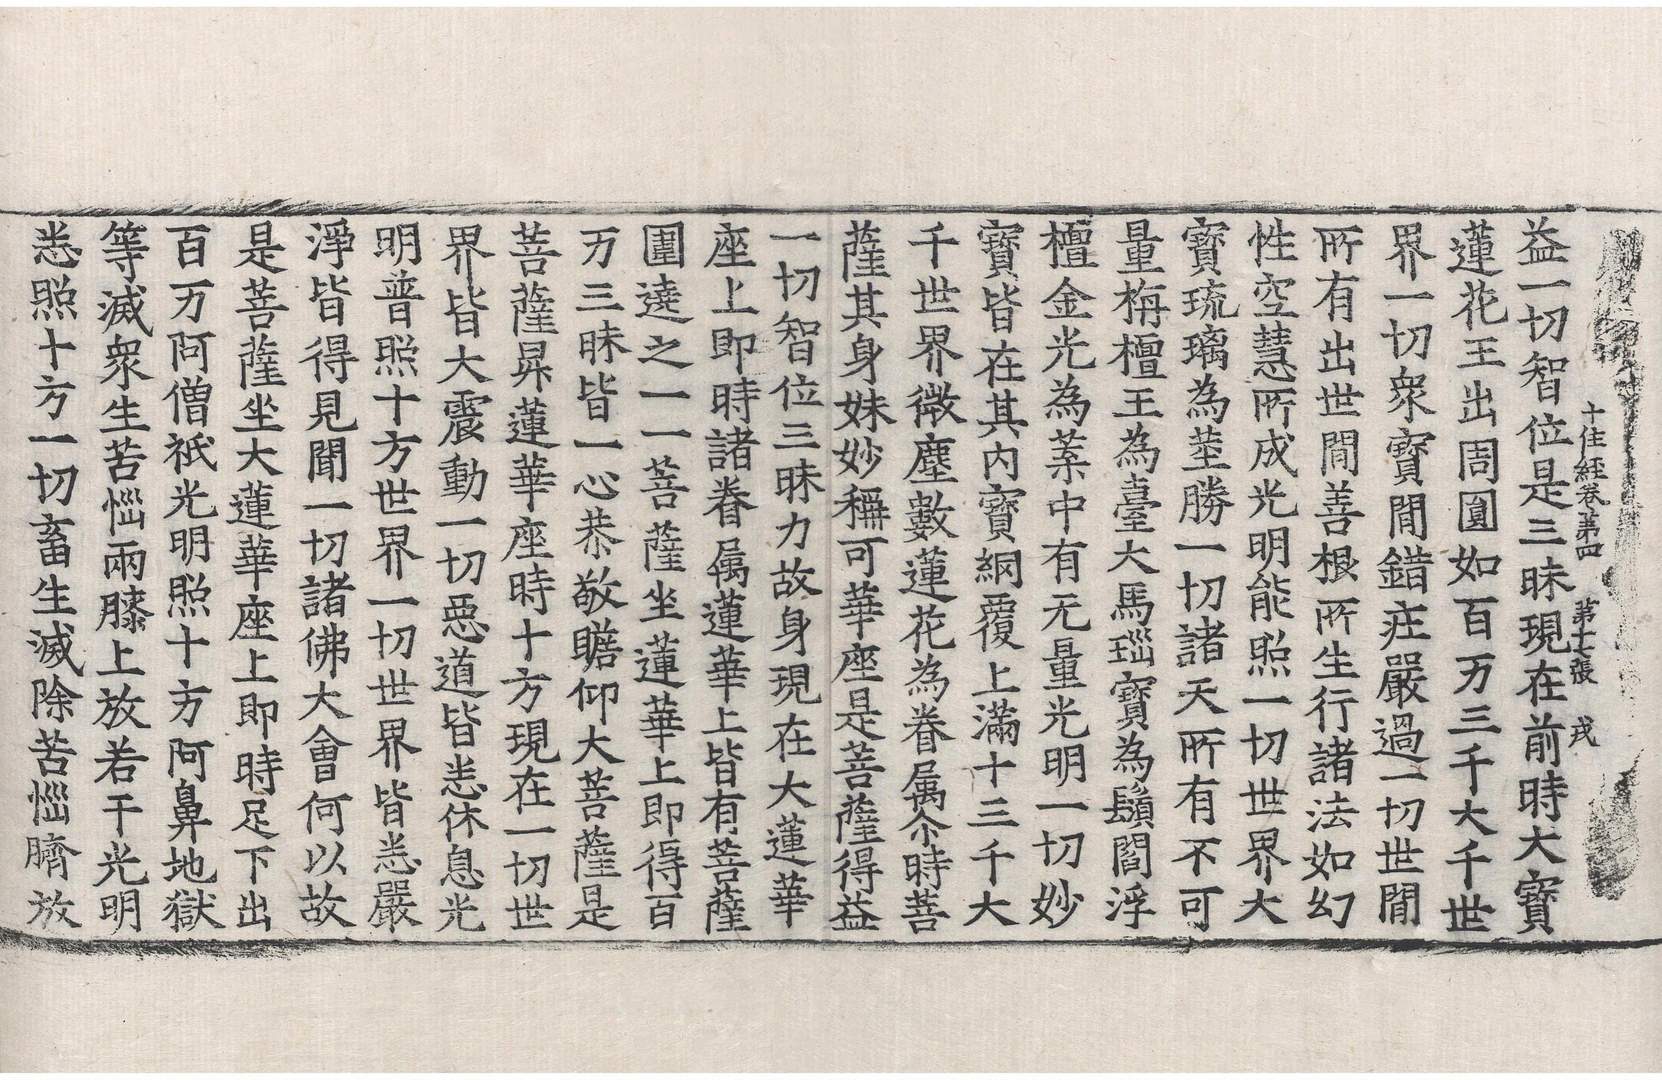 十住經卷第四 第十七張 戎
益一切智位是三昧現在前時大寶
蓮花王出周圓如百万三千大千世
界一切衆寶閒錯庄嚴過一切世閒
所有出世閒善根所生行諸法如幻
性空慧所成光明能照一切世界大
寶琉璃為莖勝一切諸天所有不可
量栴檀王為臺大馬瑙寶為鬚閻浮
檀金光為葉中有无量光明一切妙
寶皆在其內寶網覆上滿十三千大
千世界微塵數蓮花為眷属尒時菩
薩其身姝妙稱可華座是菩薩得益
一切智位三昧力故身現在大蓮華
座上即時諸眷属蓮華上皆有菩薩
圍遶之一一菩薩坐蓮華上即得百
万三昧皆一心恭敬瞻仰大菩薩是
菩薩昇蓮華座時十方現在一切世
界皆大震動一切惡道皆悉休息光
明普照十方世界一切世界皆悉嚴
淨皆得見聞一切諸佛大會何以故
是菩薩坐大蓮華座上即時足下出
百万阿僧祇光明照十方阿鼻地獄
等滅衆生苦惱兩膝上放若干光明
悉照十方一切畜生滅除苦惱臍放